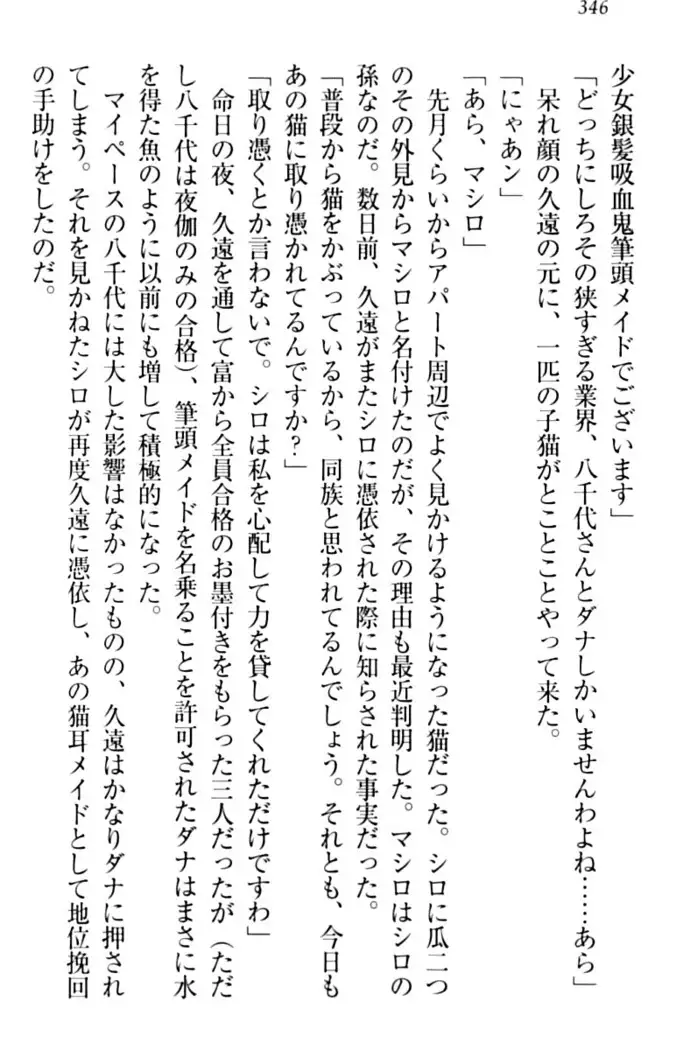 346
少女銀髪吸血鬼筆頭メイドでございます」
「どっちにしろその狭すぎる業界、八千代さんとダナしかいませんわよね……あら」
呆れ顔の久遠の元に、一匹の子猫がとことことやって来た。
「にゃあン」
「あら、マシロ」
先月くらいからアパート周辺でよく見かけるようになった猫だった。シロに瓜二つ
のその外見からマシロと名付けたのだが、その理由も最近判明した。マシロはシロの
孫なのだ。数日前、久遠がまたシロに憑依された際に知らされた事実だった。
「普段から猫をかぶっているから、同族と思われてるんでしょう。それとも、今日も
あの猫に取り憑かれてるんですか？」
「取り憑くとか言わないで。シロは私を心配して力を貸してくれただけですわ」
命日の夜、久遠を通して富から全員合格のお墨付きをもらった三人だったが（ただ
し八千代は夜伽のみの合格）、筆頭メイドを名乗ることを許可されたダナはまさに水
を得た魚のように以前にも増して積極的になった。
マイペースの八千代には大した影響はなかったものの、久遠はかなりダナに押され
てしまう。それを見かねたシロが再度久遠に憑依し、あの猫耳メイドとして地位挽回
の手助けをしたのだ。